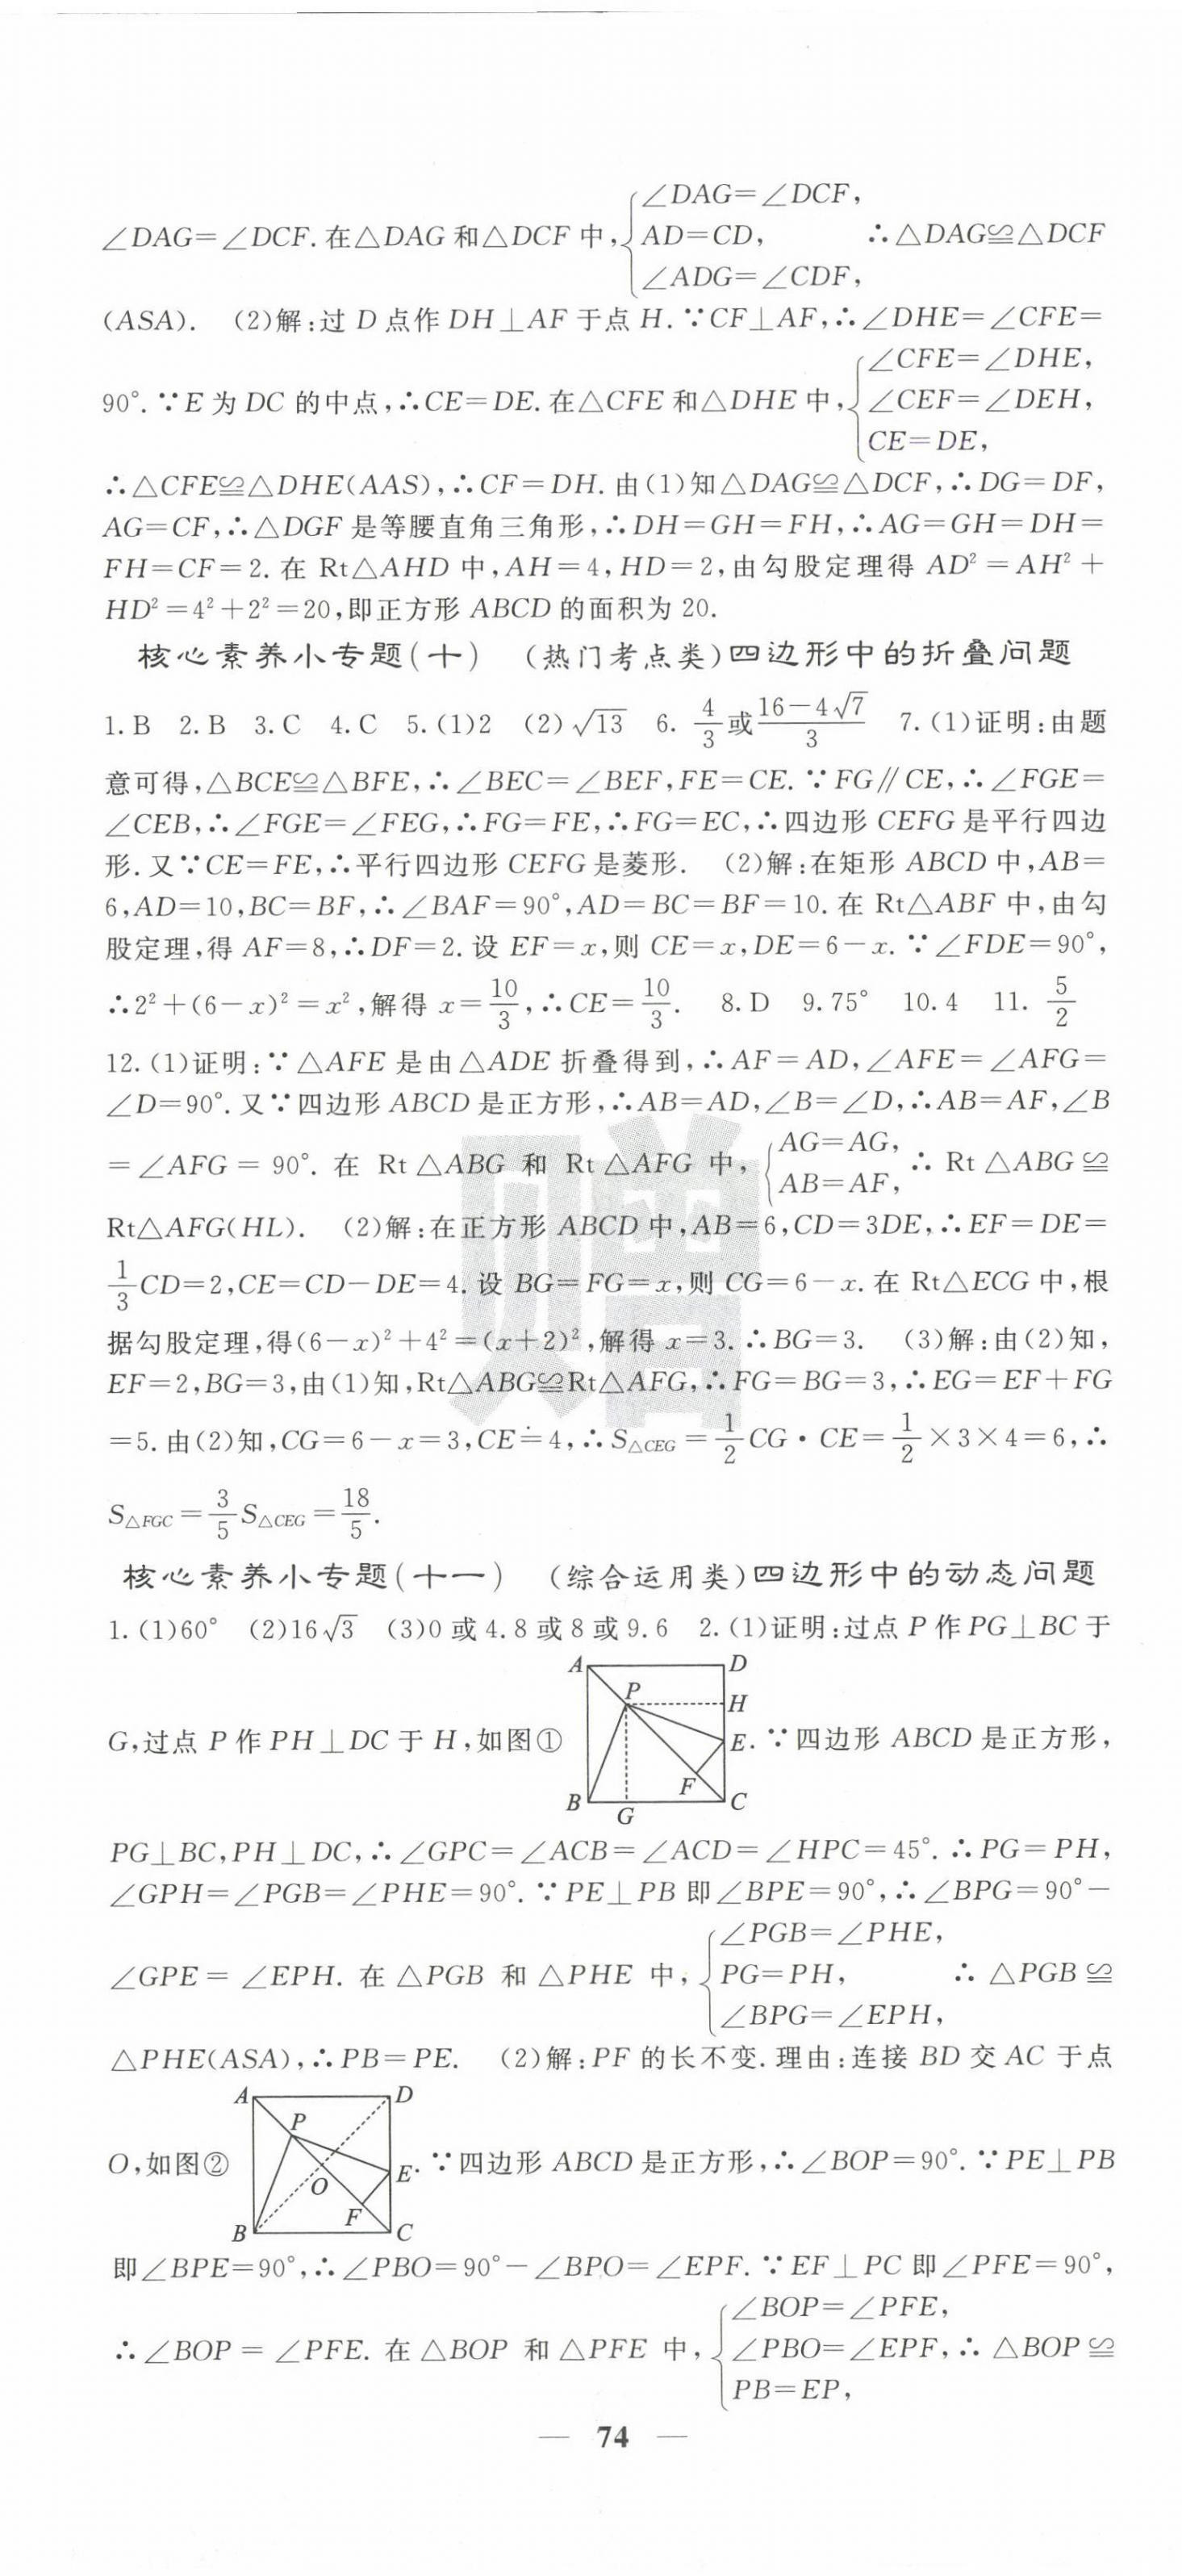 ∠DAG=∠DCF. 在△DAG 和△DCF 中,{∠DAG=∠DCF, AD=CD, ∠ADG=∠CDF, ∴△DAG≌△DCF
(ASA). (2)解:过 D 点作 DH⊥AF 于点 H. ∵CF⊥AF,∴∠DHE=∠CFE=
90°. ∵E 为 DC 的中点,∴CE=DE. 在△CFE 和△DHE 中,{∠CFE=∠DHE, ∠CEF=∠DEH, CE=DE,
∴△CFE≌△DHE(AAS),∴CF=DH. 由(1)知△DAG≌△DCF,∴DG=DF,
AG=CF,∴△DGF 是等腰直角三角形,∴DH=GH=FH,∴AG=GH=DH=
FH=CF=2. 在 Rt△AHD 中,AH=4,HD=2,由勾股定理得 AD²=AH²+
HD²=4²+2²=20,即正方形 ABCD 的面积为 20.
核心素养小专题(十) (热门考点类)四边形中的折叠问题
1. B 2. B 3. C 4. C 5. (1)2 (2)√13 6. 4/3或(16-4√7)/3 7. (1)证明:由题
意可得,△BCE≌△BFE,∴∠BEC=∠BEF,FE=CE. ∵FG∥CE,∴∠FGE=
∠CEB,∴∠FGE=∠FEG,∴FG=FE,∴FG=EC,∴四边形 CEFG 是平行四边
形. 又∵CE=FE,∴平行四边形 CEFG 是菱形. (2)解:在矩形 ABCD 中,AB=
6,AD=10,BC=BF,∴∠BAF=90°,AD=BC=BF=10. 在 Rt△ABF 中,由勾
股定理,得 AF=8,∴DF=2. 设 EF=x,则 CE=x,DE=6-x. ∵∠FDE=90°,
∴2²+(6-x)²=x²,解得 x=10/3,∴CE=10/3. 8. D 9. 75° 10. 4 11. 5/2
12. (1)证明:∵△AFE 是由△ADE 折叠得到,∴AF=AD,∠AFE=∠AFG=
∠D=90°. 又∵四边形 ABCD 是正方形,∴AB=AD,∠B=∠D,∴AB=AF,∠B
=∠AFG=90°. 在 Rt△ABG 和 Rt△AFG 中,{AG=AG, AB=AF, ∴Rt△ABG≌
Rt△AFG(HL). (2)解:在正方形 ABCD 中,AB=6,CD=3DE,∴EF=DE=
1/3CD=2,CE=CD-DE=4. 设 BG=FG=x,则 CG=6-x. 在 Rt△ECG 中,根
据勾股定理,得(6-x)²+4²=(x+2)²,解得 x=3. ∴BG=3. (3)解:由(2)知,
EF=2,BG=3,由(1)知,Rt△ABG≌Rt△AFG,∴FG=BG=3,∴EG=EF+FG
=5. 由(2)知,CG=6-x=3,CE=4,∴S△CEG=1/2CG·CE=1/2×3×4=6,∴
S△FGC=3/5S△CEG=18/5.
赠
核心素养小专题(十一) (综合运用类)四边形中的动态问题
1. (1)60° (2)16√3 (3)0 或 4.8 或 8 或 9.6 2. (1)证明:过点 P 作 PG⊥BC 于
A D P H E F B G C
G,过点 P 作 PH⊥DC 于 H,如图① . ∵四边形 ABCD 是正方形,
PG⊥BC,PH⊥DC,∴∠GPC=∠ACB=∠ACD=∠HPC=45°. ∴PG=PH,
∠GPH=∠PGB=∠PHE=90°. ∵PE⊥PB 即∠BPE=90°,∴∠BPG=90°-
∠GPE=∠EPH. 在△PGB 和△PHE 中,{∠PGB=∠PHE, PG=PH, ∠BPG=∠EPH, ∴△PGB≌
△PHE(ASA),∴PB=PE. (2)解:PF 的长不变. 理由:连接 BD 交 AC 于点
A D P O E F B C
O,如图② . ∵四边形 ABCD 是正方形,∴∠BOP=90°. ∵PE⊥PB
即∠BPE=90°,∴∠PBO=90°-∠BPO=∠EPF. ∵EF⊥PC 即∠PFE=90°,
∴∠BOP=∠PFE. 在△BOP 和△PFE 中,{∠BOP=∠PFE, ∠PBO=∠EPF, PB=EP, ∴△BOP≌
— 74 —